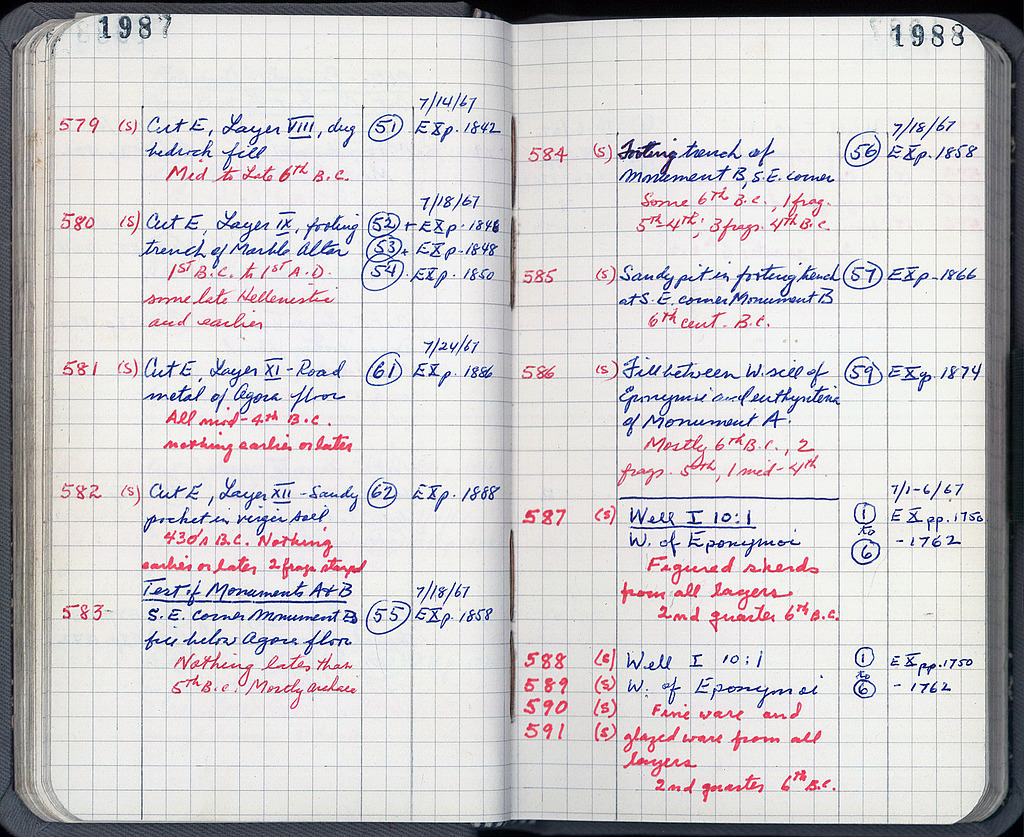 1987
7/14/67
579 (S) Cut E, Layer VIII, dug (51) EXp. 1842
bedrock fill
Mid to Late 6th B.C.
7/18/67
580 (S) Cut E, Layer IX, footing (52) + EXp. 1846
trench of Marble Altar (53) + EXp. 1848
1st B.C. to 1st A.D. (54) EXp. 1850
some late Hellenistic
and earlier
7/24/67
581 (S) Cut E, Layer XI - Road (61) EXp. 1886
metal of Agora floor
All mid-4th B.C.
nothing earlier or later
582 (S) Cut E, Layer XII - Sandy (62) EXp. 1888
pocket in virgin soil
430's B.C. Nothing
earlier or later 2 frags stamped
Test of Monuments A+B 7/18/67
583 S.E. corner Monument B (55) EXp. 1858
fill below Agora floor
Nothing later than
5th B.C. Mostly archaic
1988
7/18/67
584 (S) Footing trench of (56) EXp. 1858
Monument B, S.E. corner
Some 6th B.C., 1 frag.
5th-4th; 3 frags. 4th B.C.
585 (S) Sandy pit in footing trench (57) EXp. 1866
at S.E. corner Monument B
6th cent. B.C.
586 (S) Fill between W. sill of (59) EXp. 1874
Eponymoi and euthynteria
of Monument A.
Mostly 6th B.C., 2
frags. 5th, 1 mid-4th
7/1-6/67
587 (S) Well I 10:1 (1) EXpp. 1750
to
W. of Eponymoi (6) - 1762
Figured sherds
from all layers
2nd quarter 6th B.C.
588 (S) Well I 10:1 (1) EXpp. 1750
to
589 (S) W. of Eponymoi (6) - 1762
590 (S) Fine ware and
591 (S) glazed ware from all
layers
2nd quarter 6th B.C.